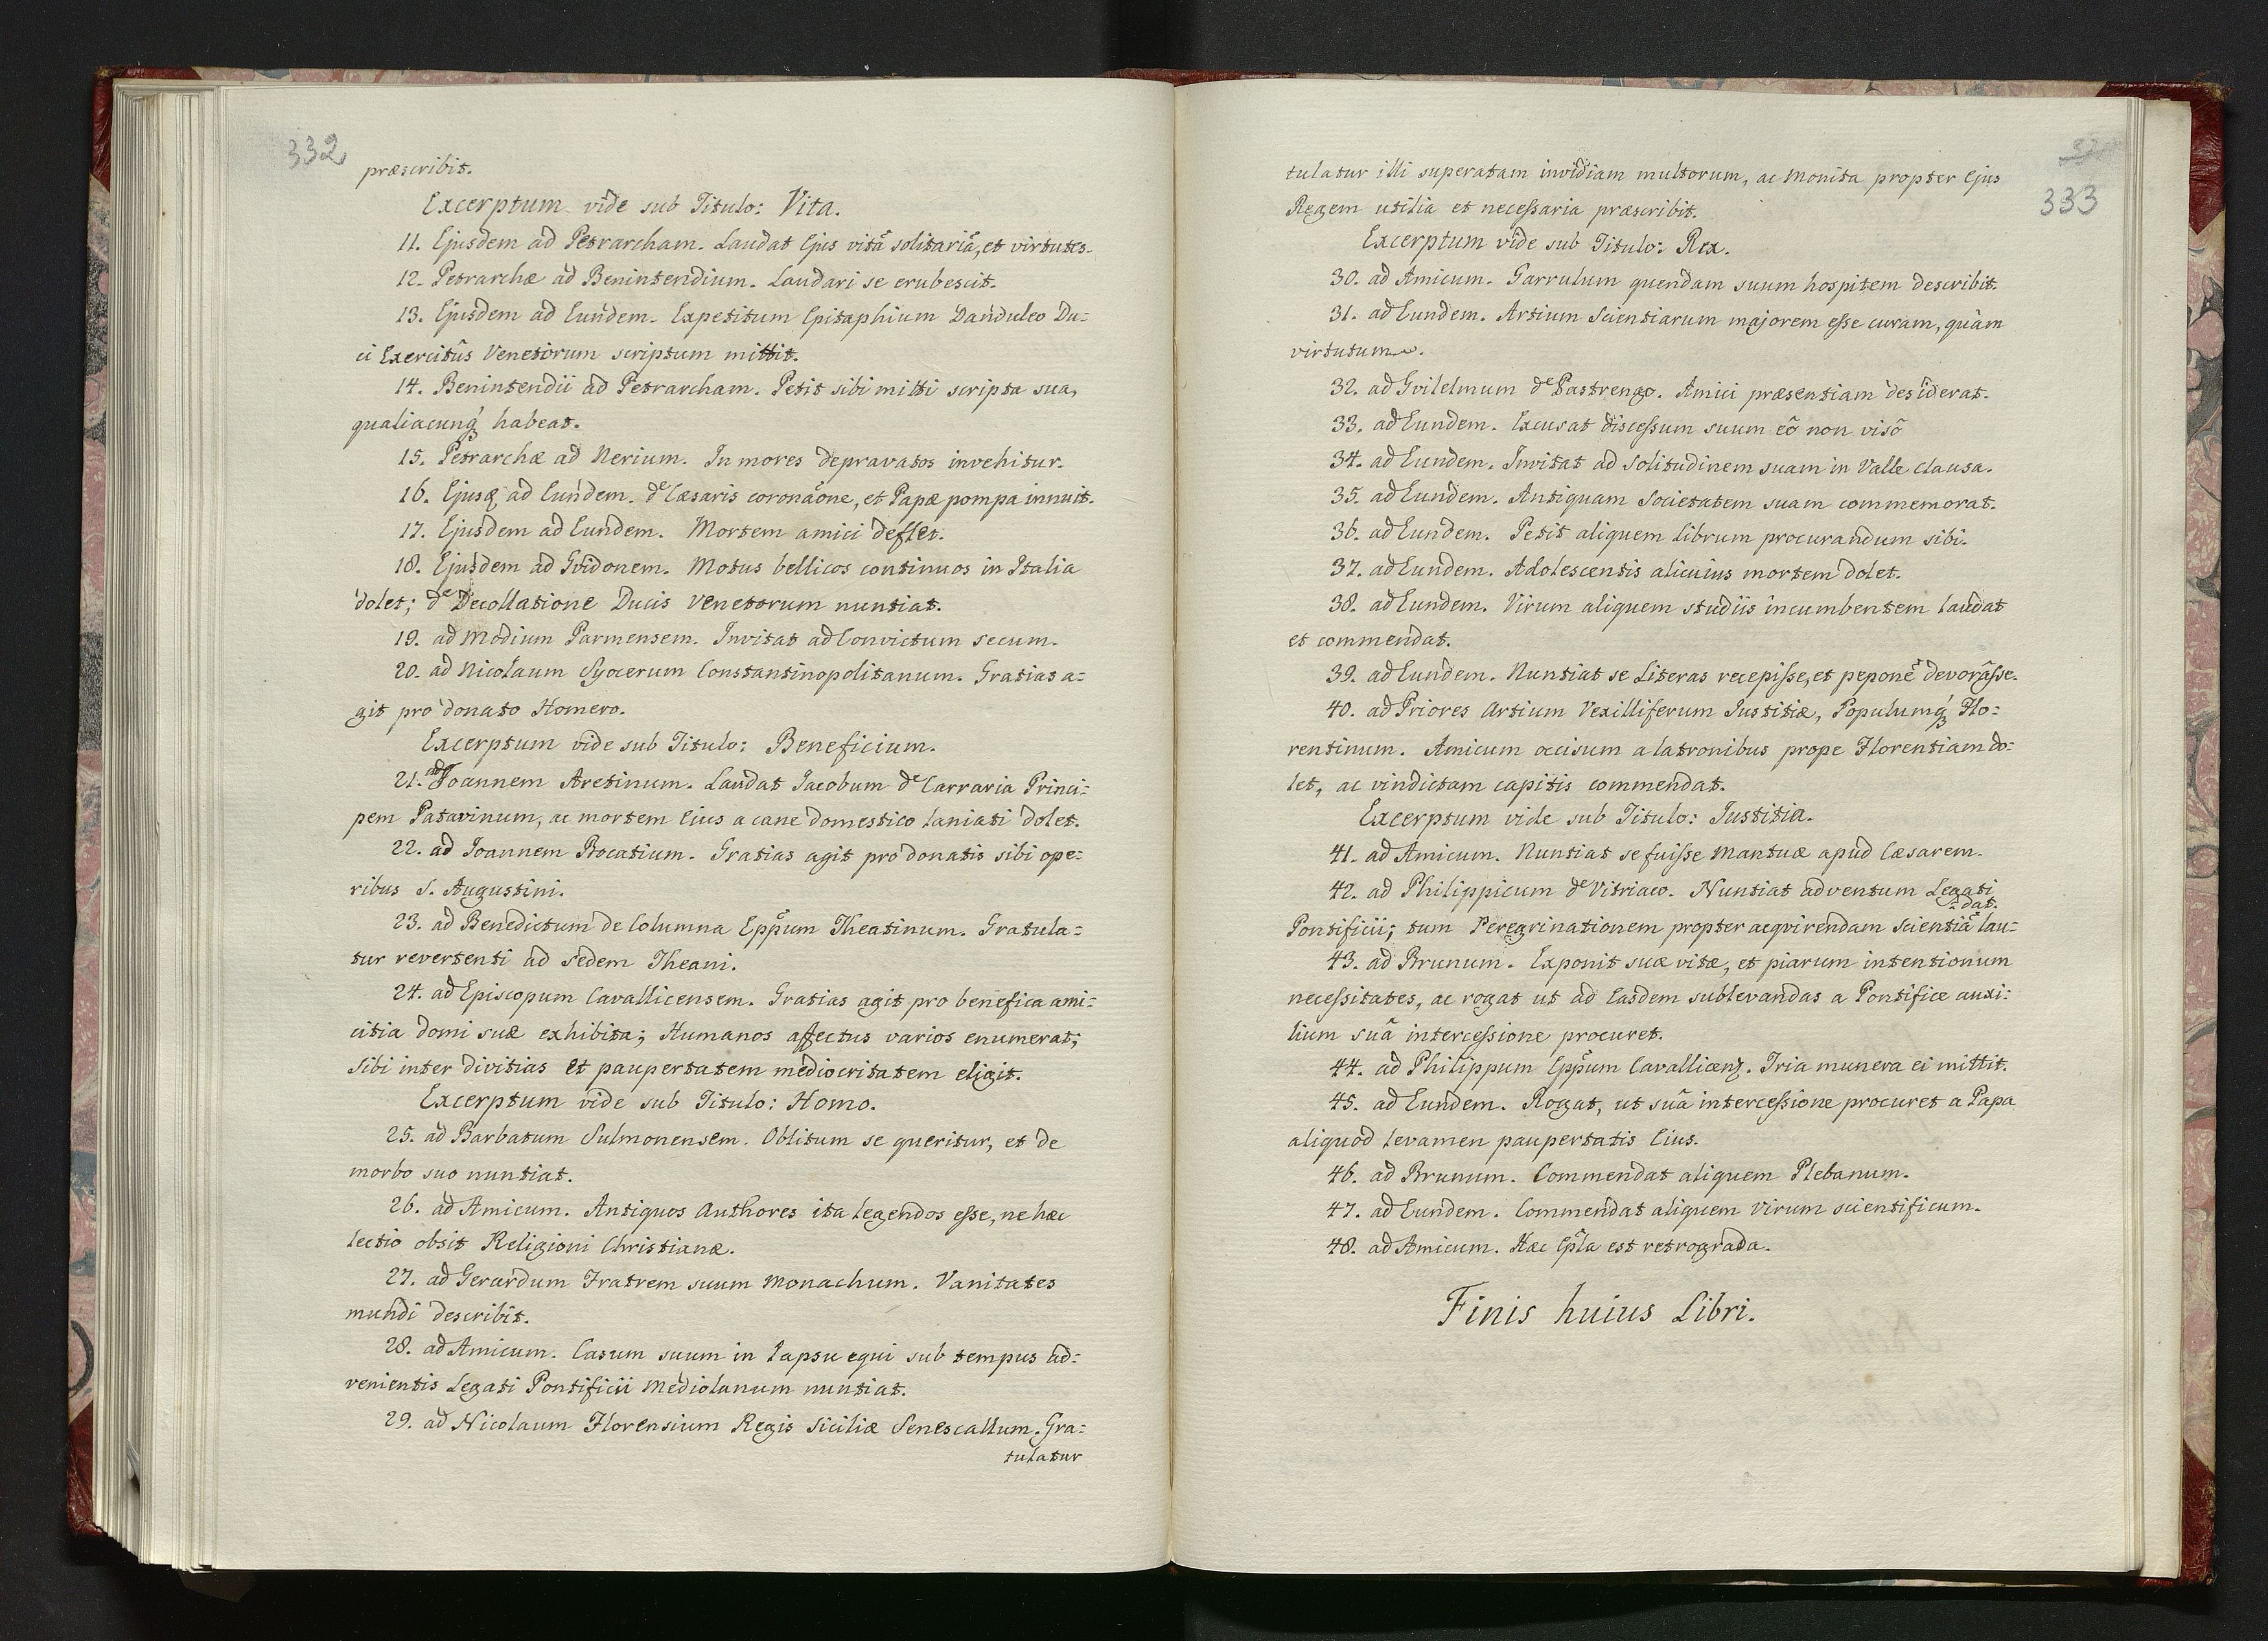 332
præscribit.
Excerptum vide sub Titulo: Vita.
11. Ejusdem ad Petrarcham. Laudat Ejus vitā solitariā, et virtutes.
12. Petrarchæ ad Benintendium. Laudari se erubescit.
13. Ejusdem ad Eundem. Expetitum Epitaphium Danduleo Du=
ci Exercitûs Venetorum scriptum mittit.
14. Benintendii ad Petrarcham. Petit sibi mitti scripta sua,
qualiacunq́ habeat.
15. Petrarchæ ad Nerium. In mores depravatos invehitur.
16. Ejusq ad Eundem. de Cæsaris coronãone, et Papæ pompa innuit.
17. Ejusdem ad Eundem. Mortem amici deflet.
18. Ejusdem ad Gvidonem. Motus bellicos continuos in Italia
dolet; de Decollatione Ducis Venetorum nuntiat.
19. ad Modium Parmensem. Invitat ad Convictum secum.
20. ad Nicolaum Syocerum Constantinopolitanum. Gratias a=
git pro donato Homero.
Excerptum vide sub Titulo: Beneficium.
21. ad Joannem Aretinum. Laudat Jacobum de Carraria Princi=
pem Patavinum, ac mortem Eius a cane domestico laniati dolet.
22. ad Joannem Bocatium. Gratias agit pro donatis sibi ope=
ribus S. Augustini.
23. ad Benedictum de Columna Epp̃um Theatinum. Gratula=
tur revertenti ad Sedem Theani.
24. ad Episcopum Cavallicensem. Gratias agit pro benefica ami=
citia domi suæ exhibita; Humanos affectus varios enumerat;
Sibi inter divitias et paupertatem mediocritatem eligit.
Excerptum vide sub Titulo: Homo.
25. ad Barbatum Sulmonensem. Oblitum se queritur, et de
morbo suo nuntiat.
26. ad Amicum. Antiquos Authores ita legendos eſse, ne hæc
lectio obsit Religioni Christianæ.
27. ad Gerardum Fratrem suum Monachum. Vanitates
mundi describit.
28. ad Amicum. Casum suum in lapsu equi sub tempus ad=
venientis Legati Pontificii Mediolanum nuntiat.
29. ad Nicolaum Florensium Regis Siciliæ Senescallum. Gra=
tulatur
333
tulatur illi superatam invidiam multorum, ac Monita propter Ejus
Regem utilia et neceſsaria præscribit.
Excerptum vide sub Titulo: Rex.
30. ad Amicum. Garrulum quendam suum hospitem describit.
31. ad Eundem. Artium Scientiarum majorem eſse curam, quàm
virtutum.
32. ad Gvilelmum de Pastrengo. Amici præsentiam desiderat.
33. ad Eundem. Excusat disceſsum suum eô non visô
34. ad Eundem. Invitat ad Solitudinem suam in Valle Clausa.
35. ad Eundem. Antiquam Societatem suam commemorat.
36. ad Eundem. Petit aliquem Librum procurandum sibi.
37. ad Eundem. Adolescentis alicuius mortem dolet.
38. ad Eundem. Virum aliquem studiis incumbentem laudat
et commendat.
39. ad Eundem. Nuntiat se Literas recepiſse, et peponē devorâſse.
40. ad Priores Artium Vexilliferum Justitiæ, Populumq́ Flo=
rentinum. Amicum occisum a latronibus prope Florentiam do=
let, ac vindictam capitis commendat.
Excerptum vide sub Titulo: Justitia.
41. ad Amicum. Nuntiat se fuiſse Mantuæ apud Cæsarem.
42. ad Philippicum de Vitriaco. Nuntiat adventum Legati
Pontificii; tum Peregrinationem propter acqvirendam scientiā lau=
=dat.
43. ad Brunum. Exponit suæ vitæ, et piarum intentionum
neceſsitates, ac rogat ut ad Easdem sublevandas a Pontifice auxi=
lium suâ interceſsione procuret.
44. ad Philippum Epp̃um Cavallicenz. Tria munera ei mittit.
45. ad Eundem. Rogat, ut suâ interceſsione procuret a Papa
aliquod levamen paupertatis Eius.
46. ad Brunum. Commendat aliquem Plebanum.
47. ad Eundem. Commendat aliquem virum scientificum.
48. ad Amicum. Hæc Ep̃la est retrograda.
Finis huius Libri.